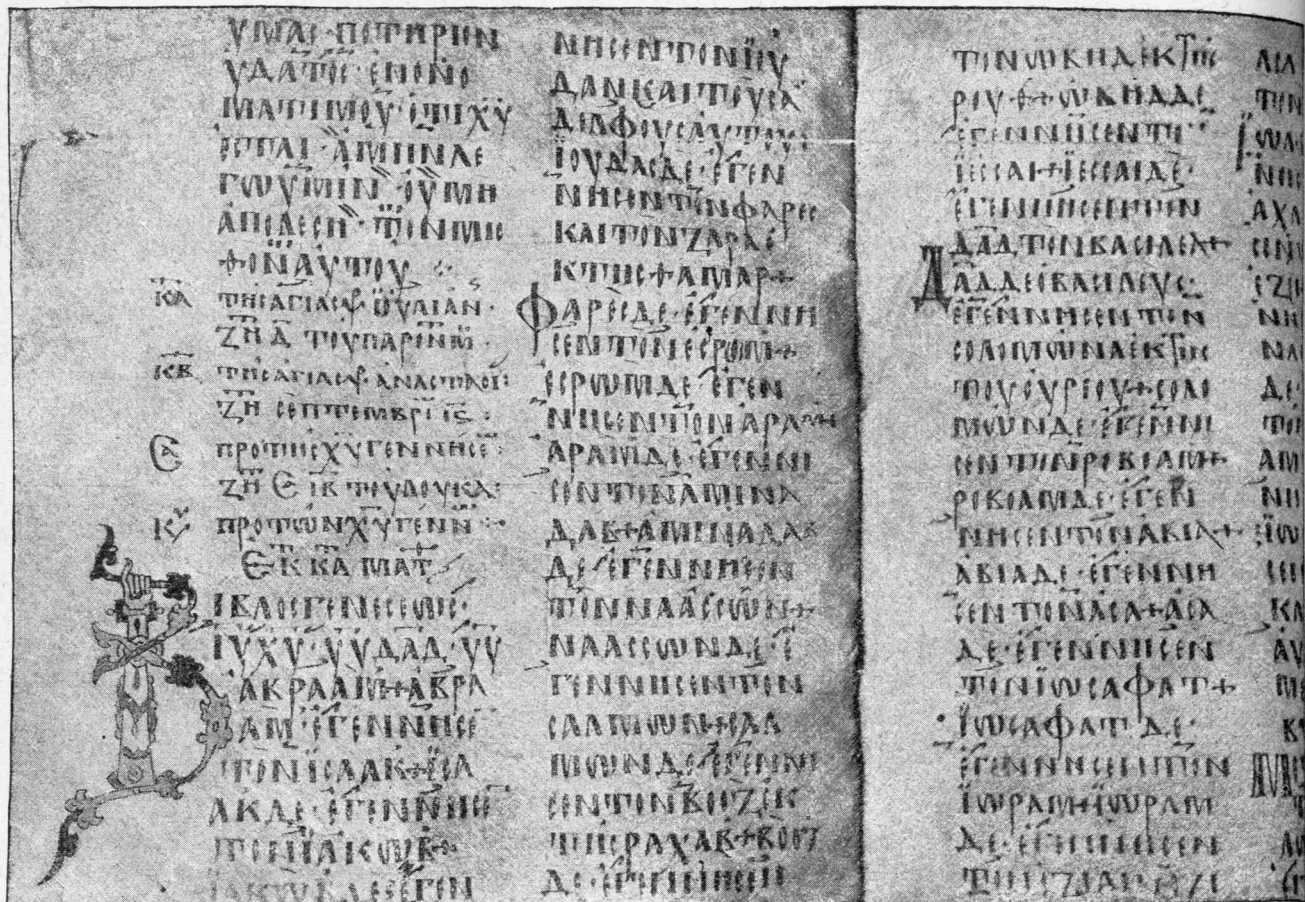 ΥΜΑϹ ΠΟΤΗΡΙΟΝ
ΥΔΑΤΟϹ· ΕΝ ΟΝΟ
ΜΑΤΙ ΜΟΥ· ΟΤΙ Χ̅Υ̅
ΕϹΤΑΙ· ΑΜΗΝ ΛΕ
ΓΩ ΥΜΙΝ· ΟΥ ΜΗ
ΑΠΟΛΕϹΗ ΤΟΝ ΜΙ
ϹΘΟΝ ΑΥΤΟΥ
ΚΑ ΤΗϹ ΑΓΙΑϹ ΙΟΥΛΙΑΝ·
ΖΗ Δ ΤΟΥ ΠΑΡΟΝ
ΚΒ ΤΗϹ ΑΓΙΑϹ ΑΝΑϹΤΑϹΙ
ΖΗ ϹΕΠΤΕΜΒΡΙ ΙϚ·
ΠΡΟ ΤΗϹ Χ̅Υ̅ ΓΕΝΝΗϹΕ
ΖΗ Ε ΤΟΥ ΔΟΥΚΑ·
ΚΥ ΠΡΟ ΤΩΝ Χ̅Υ̅ ΓΕΝΝ
ΕΚ ΚΑ ΜΑΤ
ΒΙΒΛΟϹ ΓΕΝΕϹΕΩϹ·
Ι̅Υ̅ Χ̅Υ̅· Υ̅Υ̅ Δ̅Α̅Δ̅· Υ̅Υ̅
ΑΒΡΑΑΜ + ΑΒΡΑ
ΑΜ· ΕΓΕΝΝΗϹΕ
ΤΟΝ ΙϹΑΑΚ + ΙϹΑ
ΑΚ ΔΕ· ΕΓΕΝΝΗϹΕ
ΤΟΝ ΙΑΚΩΒ +
ΙΑΚΩΒ ΔΕ ΕΓΕΝ
ΝΗϹΕΝ ΤΟΝ ΙΟΥ
ΔΑΝ ΚΑΙ ΤΟΥϹ Α
ΔΕΛΦΟΥϹ ΑΥΤΟΥ
ΙΟΥΔΑϹ ΔΕ· ΕΓΕΝ
ΝΗϹΕΝ ΤΟΝ ΦΑΡΕϹ
ΚΑΙ ΤΟΝ ΖΑΡΑ Ε
Κ ΤΗϹ ΘΑΜΑΡ +
ΦΑΡΕϹ ΔΕ· ΕΓΕΝΝΗ
ϹΕΝ ΤΟΝ ΕϹΡΩΜ +
ΕϹΡΩΜ ΔΕ· ΕΓΕΝ
ΝΗϹΕΝ ΤΟΝ ΑΡΑΜ
ΑΡΑΜ ΔΕ· ΕΓΕΝΝΗ
ϹΕΝ ΤΟΝ ΑΜΙΝΑ
ΔΑΒ + ΑΜΙΝΑΔΑΒ
ΔΕ· ΕΓΕΝΝΗϹΕΝ
ΤΟΝ ΝΑΑϹϹΩΝ +
ΝΑΑϹϹΩΝ ΔΕ· Ε
ΓΕΝΝΗϹΕΝ ΤΟΝ
ϹΑΛΜΩΝ + ϹΑΛ
ΜΩΝ ΔΕ· ΕΓΕΝΝΗ
ϹΕΝ ΤΟΝ ΒΟΟΖ ΕΚ
ΤΗϹ ΡΑΧΑΒ + ΒΟΟΖ
ΔΕ· ΕΓΕΝΝΗϹΕΝ
ΤΟΝ ΩΒΗΔ ΕΚ ΤΗϹ
ΡΟΥΘ + ΩΒΗΔ ΔΕ
ΕΓΕΝΝΗϹΕΝ ΤΟ
ΙΕϹϹΑΙ + ΙΕϹϹΑΙ ΔΕ·
ΕΓΕΝΝΗϹΕΝ ΤΟΝ
Δ̅Α̅Δ̅ ΤΟΝ ΒΑϹΙΛΕΑ +
Δ̅Α̅Δ̅ ΔΕ Ο ΒΑϹΙΛΕΥϹ·
ΕΓΕΝΝΗϹΕΝ ΤΟΝ
ϹΟΛΟΜΩΝΑ ΕΚ ΤΗϹ
ΤΟΥ ΟΥΡΙΟΥ + ϹΟΛΟ
ΜΩΝ ΔΕ· ΕΓΕΝΝΗ
ϹΕΝ ΤΟΝ ΡΟΒΟΑΜ +
ΡΟΒΟΑΜ ΔΕ· ΕΓΕΝ
ΝΗϹΕΝ ΤΟΝ ΑΒΙΑ +
ΑΒΙΑ ΔΕ· ΕΓΕΝΝΗ
ϹΕΝ ΤΟΝ ΑϹΑ + ΑϹΑ
ΔΕ· ΕΓΕΝΝΗϹΕΝ
ΤΟΝ ΙΩϹΑΦΑΤ +
ΙΩϹΑΦΑΤ ΔΕ·
ΕΓΕΝΝΗϹΕΝ ΤΟΝ
ΙΩΡΑΜ + ΙΩΡΑΜ
ΔΕ· ΕΓΕΝΝΗϹΕΝ